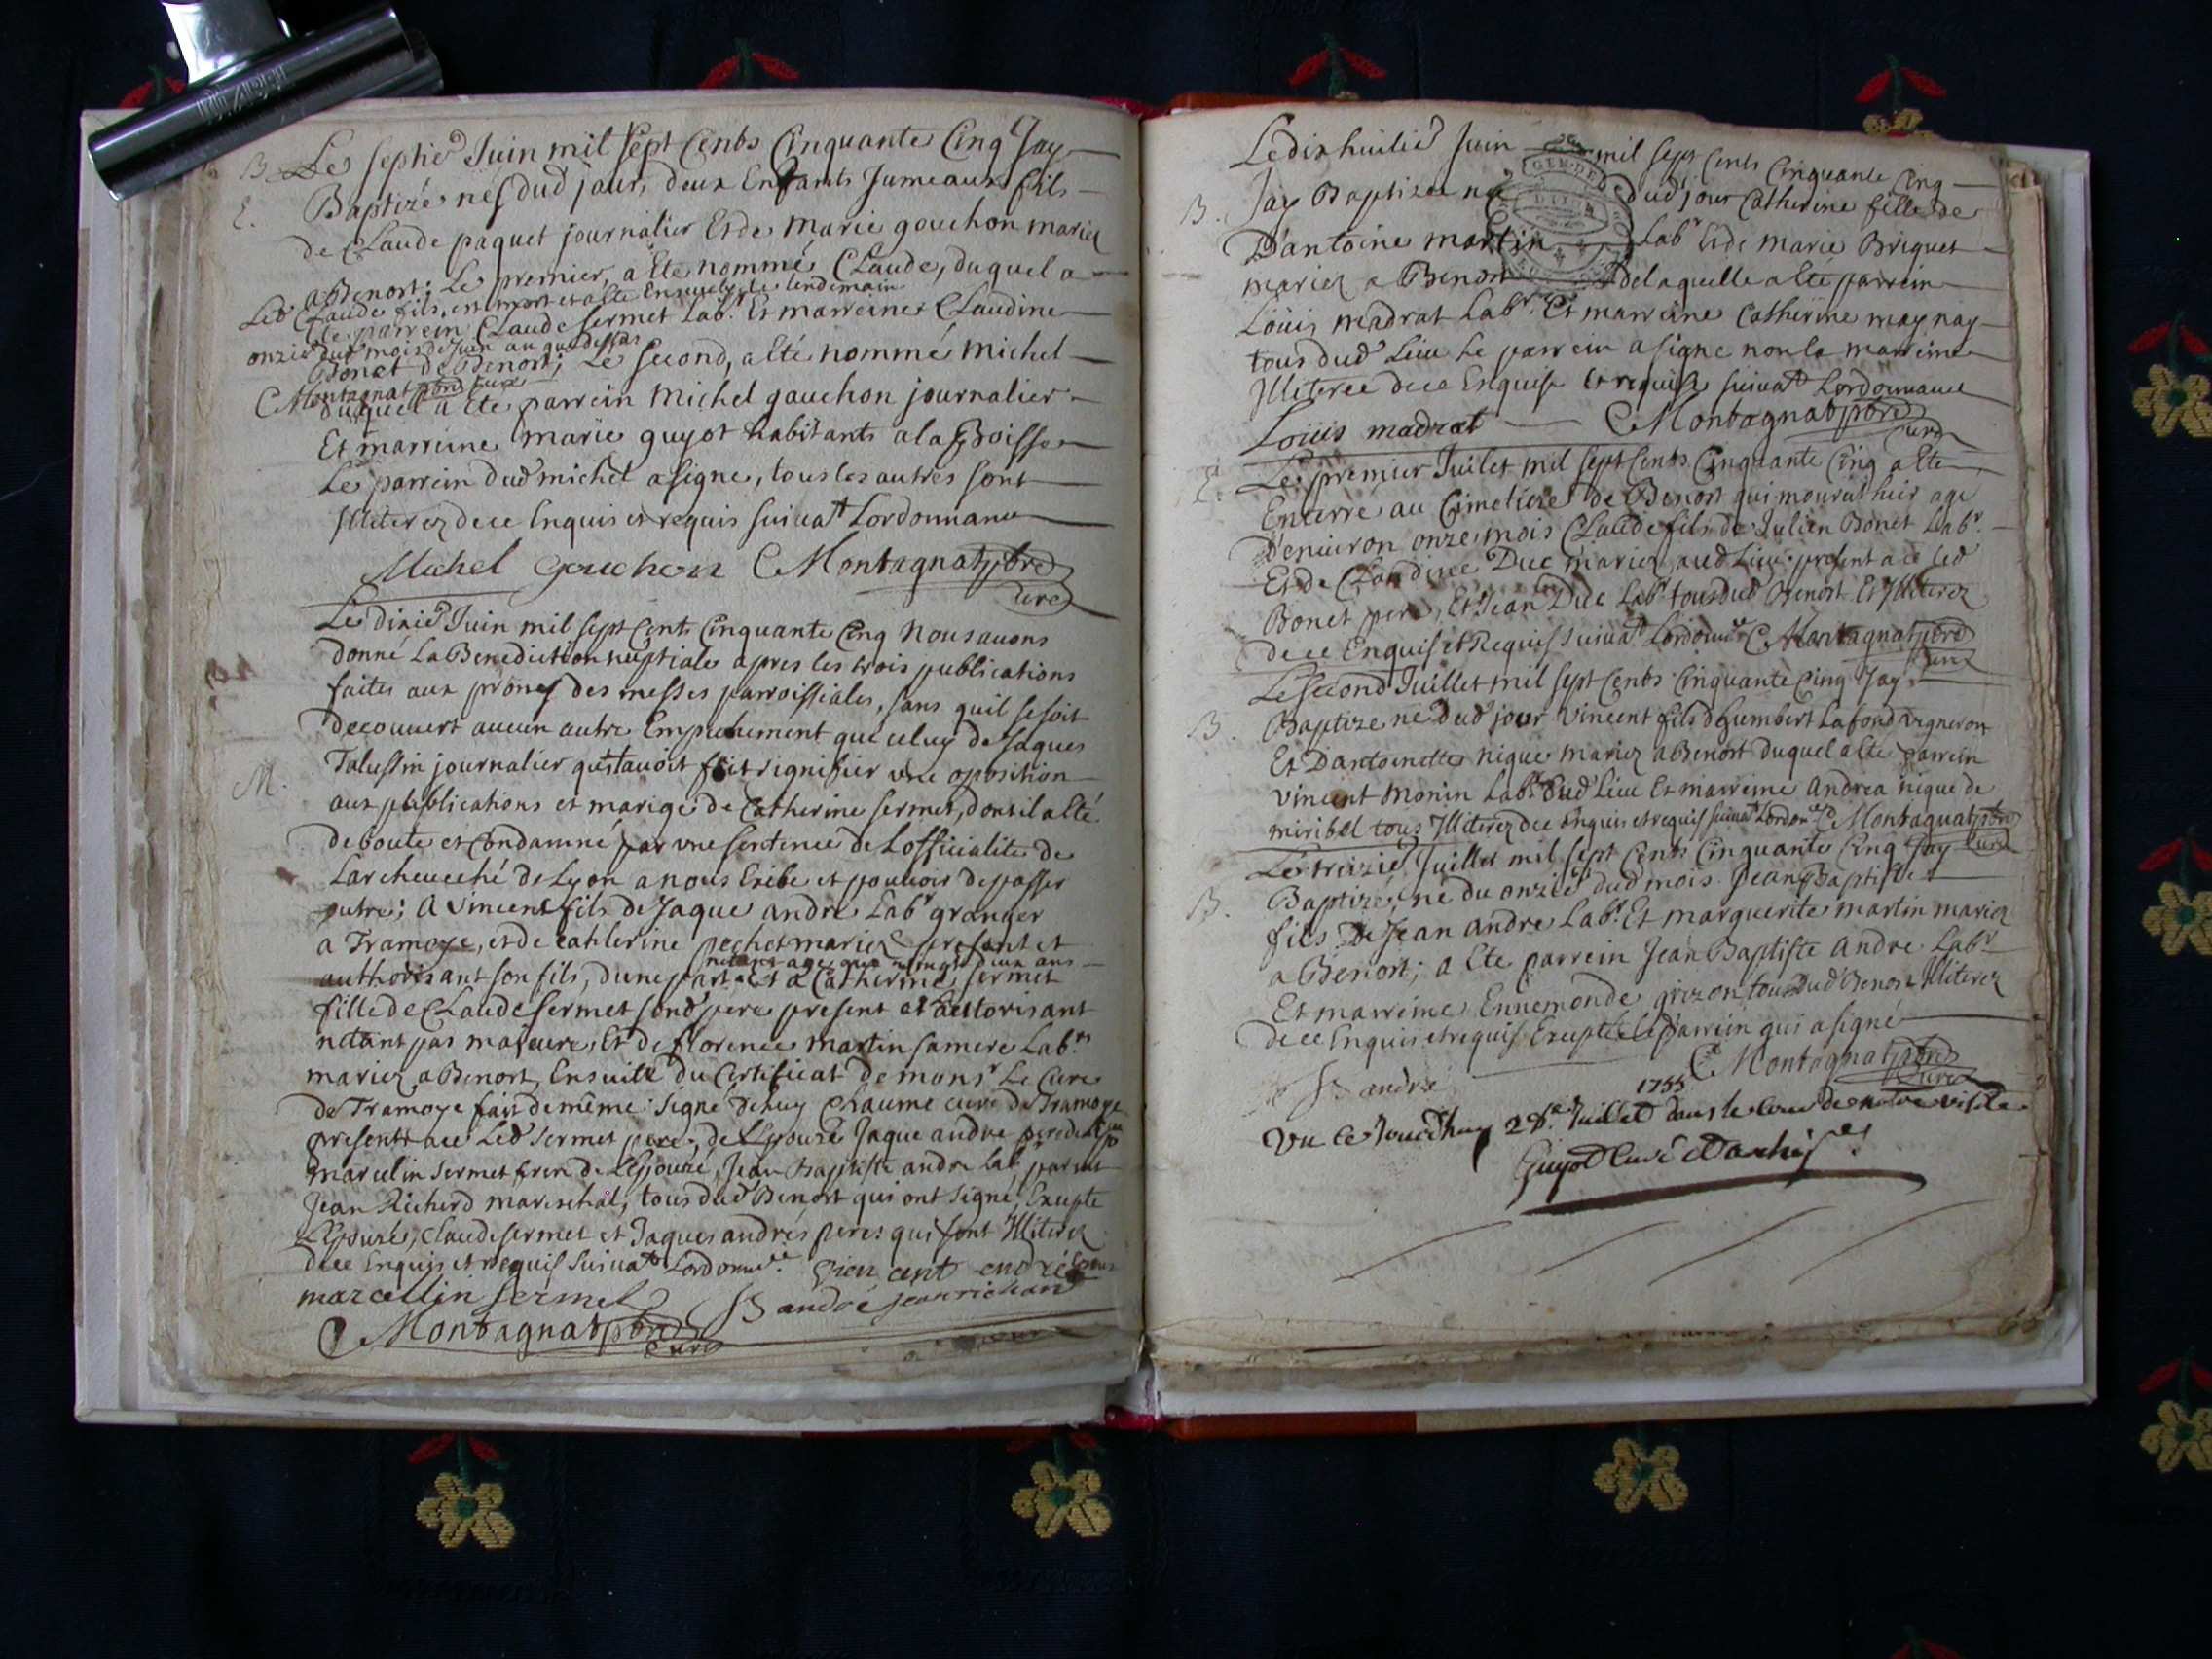 B. Le septie Juin mil sept Cents Cinquante Cinq Jay
E. Baptizé nes dud jour, deux Enfants Jumeaux fils
de Claude paquet journalier Et de marie gouchon mariez
a Benort: Le premier, a Eté nommé Claude, duquel a
Led Claude fils, est mort et a Eté Enseveli le lendemain
Eté parrein Claude sermet Lab.r Et marreine Claudine
onzie dud mois de Juin
Bonet de Benort; Le second, a Eté nommé michel
C Montagnat pbre Curé
duquel a Ete parrein michel gauchon journalier
Et marreine marie guyot habitants a la Boisse
Le parrein dud michel a signe, tous les autres sont
Illiterez de ce Enquis et requis suivat Lordonnance
Michel gouchon C Montagnat pbre
Curé
Le dixie Juin mil sept Cents Cinquante Cinq Nous avons
donné La Benediction nuptiale apres les trois publications
faites aux prones des messes parroissiales, sans quil se soit
decouvert aucun autre Empechement que celuy de Jaques
M. Talussin journalier qui avoit fait signifier une oposition
aux publications et marige de Catherine sermet, dont il a Eté
deboute et Condamné par une sentence de Lofficialité de
Larcheveché de Lyon a nous Exibe et pouvoir de passer
outre; a vincent fils de Jaque andré Labr granger
a Tramoye, et de catherine pechet mariez present et
netant age que de vingt deux ans
authorisant son fils, dune part Et a Catherine sermet
fille de Claude sermet sond pere present et autorisant
netant pas majeure, Et de florence martin sa mere Lab.rs
mariez a Benort, Ensuite du Certificat de monsr Le Curé
de Tramoye fait de même signé Chaume curé de Tramoye
presents a ce Led sermet pere de Lepouze Jaque andre pere de
marcelin sermet frere de Lepouzé, Jean Baptiste andre Labr parent
Jean Richerd mareschal, tous dud Benort qui ont signé, Excepté
Lepouzé, Claude sermet et Jaques andré peres qui sont Illiterez
de ce Enquis et requis suivat Lordonnce. vien cent endré
marcellin sermet JB andré jean richard
C Montagnat pbre
Curé
Le dixhuitie Juin mil sept Cents Cinquante Cinq
B. Jay Baptizee née dud jour Catherine fille de
D'antoine martin Labr Et de marie Briquet
mariez a Benort de laquelle a Eté parrein
Loüis madrat Labr. Et marreine Catherine maynay
tous dud Lieu Le parrein a signe non la marreine
Illiteree de ce Enquise et requise suivat Lordonnance
Loüis madrat C Montagnat pbre
Curé
E. Le premier Juilet mil sept Cents Cinquante Cinq a Ete
Enterre au Cimetiere de Benort qui mourut hier age
D'environ onze mois Claude fils de Julien Bonet Labr.
Et de Claudine Duc mariez aud Lieu present a ce led
Bonet pere, Et Jean Duc Labr tous dud Benort Et Illiterez
de ce Enquis et Requis suivat Lordonnce C Montagnat pbre
Curé
Le second Juillet mil sept Cents Cinquante Cinq Jay
B. Baptize ne dud jour vincent fils d'humbert Lafond vigneron
Et D'antoinette nique mariez a Benort duquel a Ete parrein
vincent monin Labr. dud Lieu Et marreine andrea nique de
miribel tous Illiterez de ce enquis et requis suivat Lordonce C Montagnat pbre
Curé
Le treizie Juillet mil sept Cents Cinquante Cinq Jay
B. Baptizé, né du onzie dud mois Jean Baptiste
fils de Jean andre Labr. Et marguerite martin mariez
a Benort; a Ete parrein Jean Baptiste andre Labr
Et marreine Ennemonde grizon, tous dud Benort Illiterez
de ce Enquis et requis Excepté le parrein qui a signé
C Montagnat pbre
JB andré Curé
1755
Vu ce Jourdhuy 28.e Juillet dans le cours de notre visite
Guyot Curé et archip.re